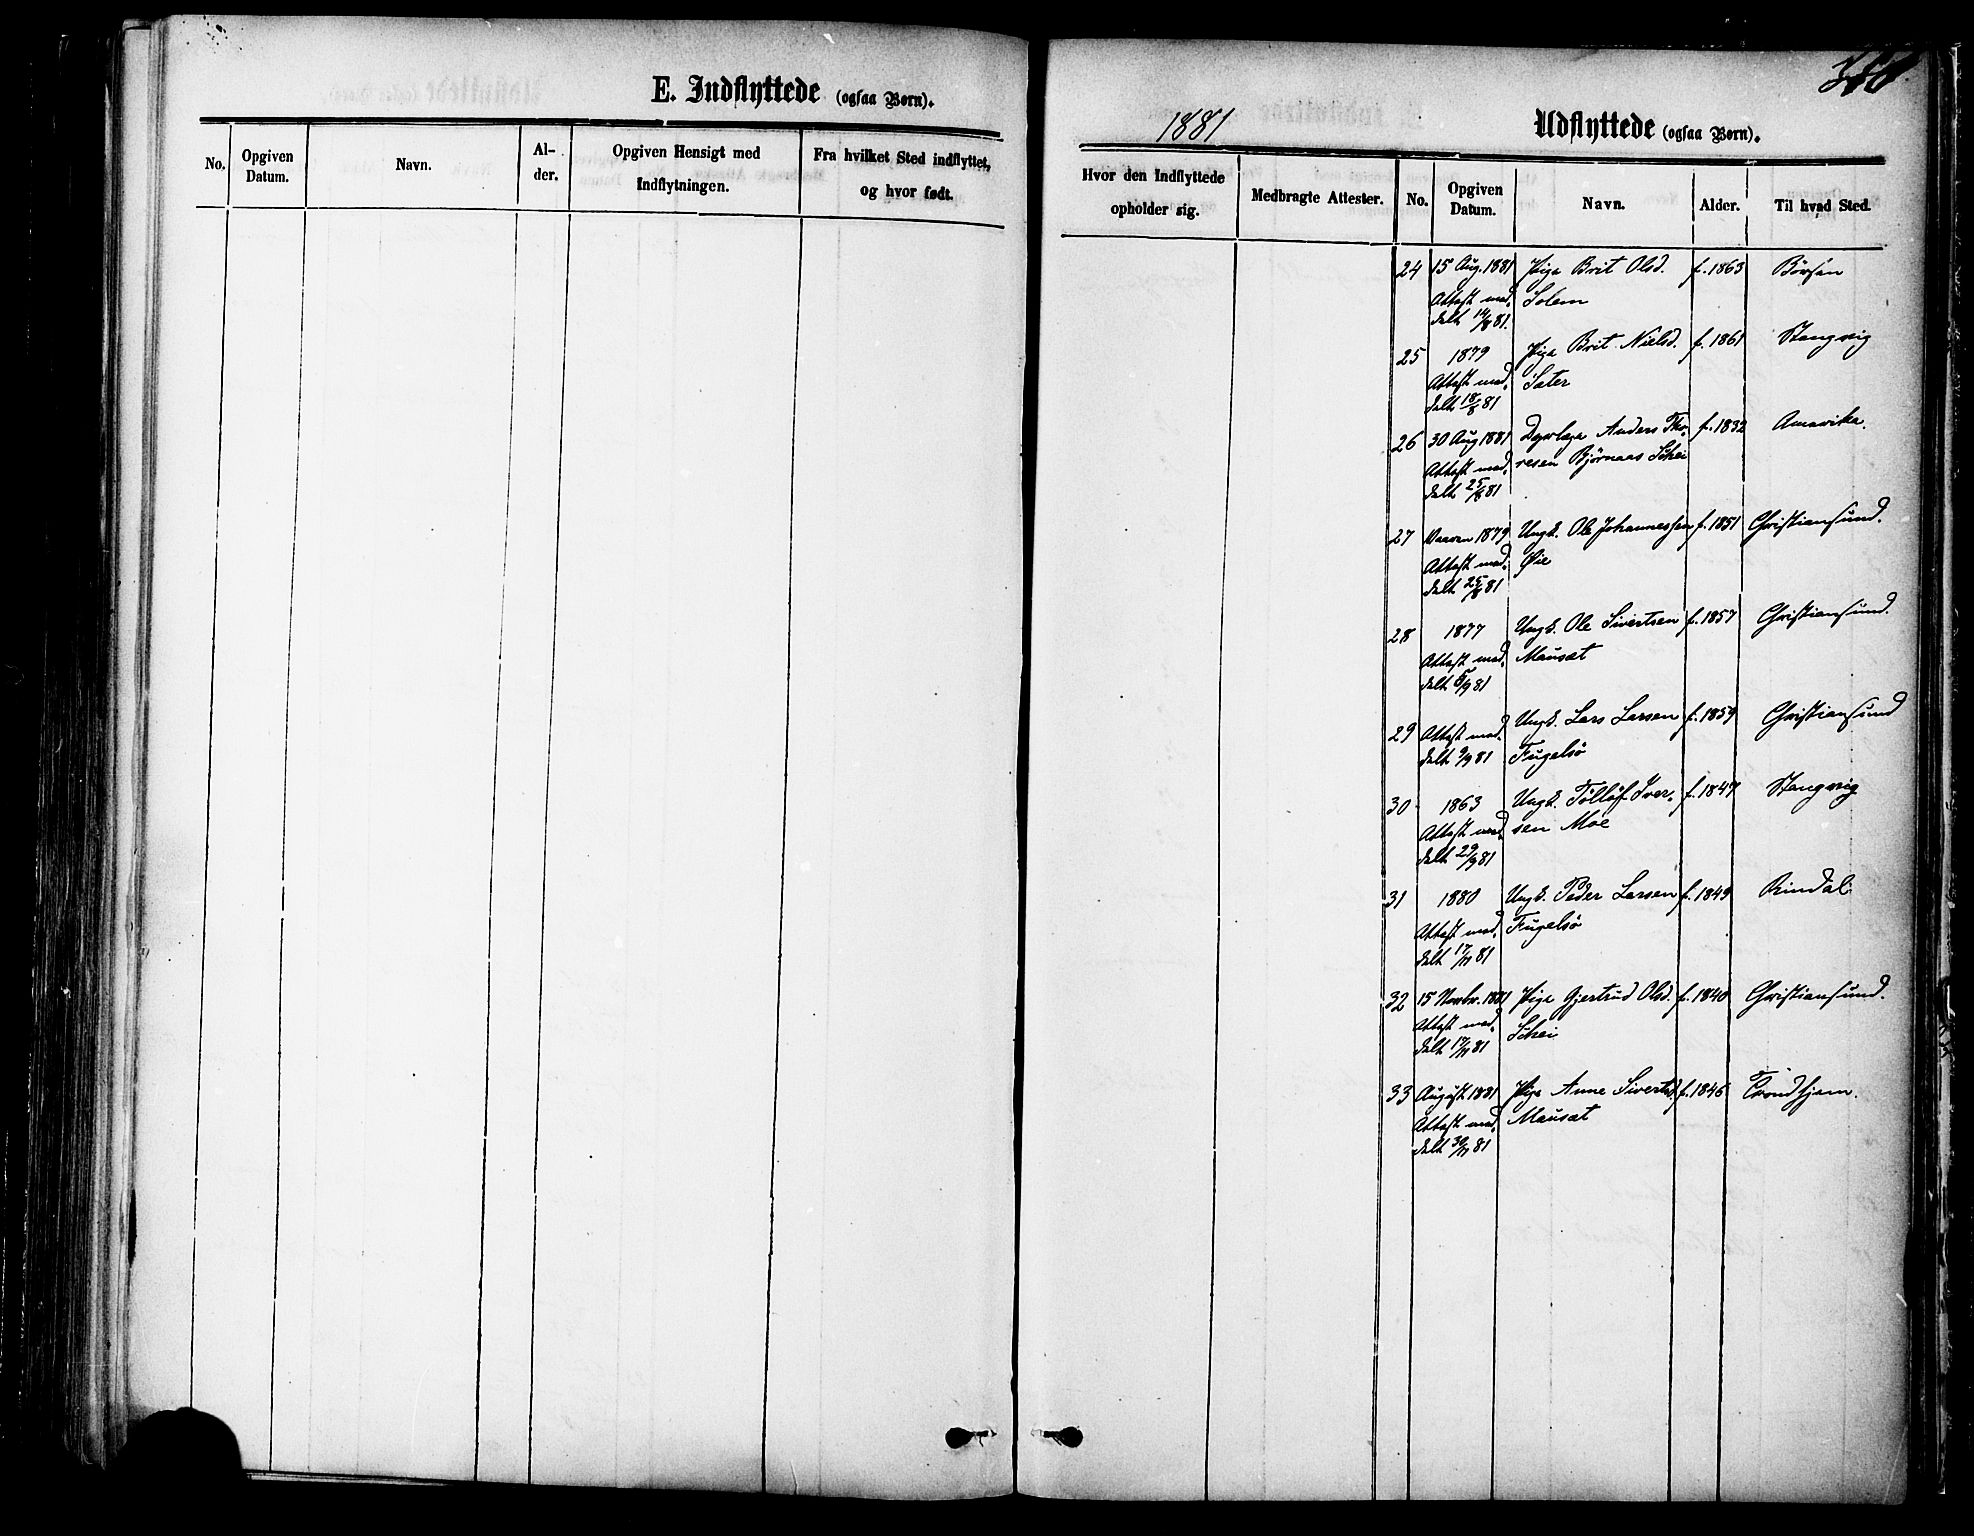 E. Indflyttede (ogsaa Børn).
No.
Opgiven Datum.
Navn.
Al-
der.
Opgiven Hensigt med
Indflytningen.
Fra hvilket Sted indflyttet,
og hvor født.
1881
Udflyttede (ogsaa Børn).
Hvor den Indflyttede
opholder sig.
Medbragte Attester.
No.
Opgiven Datum.
Navn.
Alder.
Til hvad Sted.
24 15 Aug. 1881 Pige Brit Olsd. f. 1863 Börsen
Attest med- Solem
delt 14/8 81.
25 1879 Pige Brit Nielsd. f. 1861 Stangvig
Attest med- Sæter
delt 18/8 81
26 30 Aug 1881 Dyrlæge Anders Tho- f. 1832 Amerika.
Attest med- resen Björnaas Schei
delt 25/8 81
27 Vaaren 1879 Ungk. Ole Johannessen f. 1851 Christiansund.
Attest med- Øie
delt 25/8 81
28 1877 Ungk. Ole Sivertsen f. 1857 Christiansund.
Attest med- Mausæt
delt 5/9 81
29 Ungk. Lars Larsen f. 1859 Christiansund
Attest med- Fugelsö
delt 9/9 81
30 1863 Ungk. Tölløf Iver- f. 1847 Stangvig
Attest med- sen Moe
delt 29/9 81
31 1880 Ungk. Peder Larsen f. 1849 Rindal
Attest med- Fugelsö
delt 17/11 81
32 15 Novbr. 1881 Pige Gjertrud Olsd. f. 1840 Christiansund.
Attest med- Schei
delt 17/11 81
33 August 1881 Pige Anne Sivertsd. f. 1846 Trondhjem.
Attest med- Mausæt
delt 30/11 81